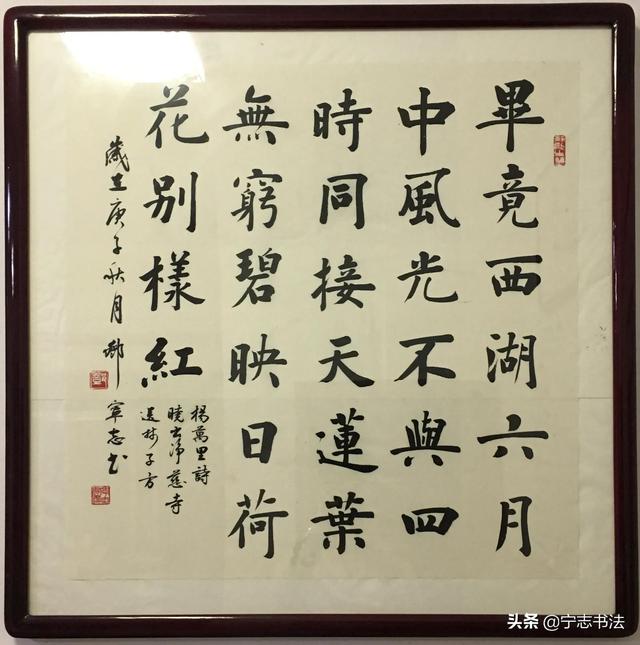 畢竟西湖六月
中風光不與四
時同接天蓮葉
無窮碧映日荷
花別樣紅
楊萬里詩
曉出淨慈寺
送林子方
歲在庚子秋月寧志书
头条 @宁志书法